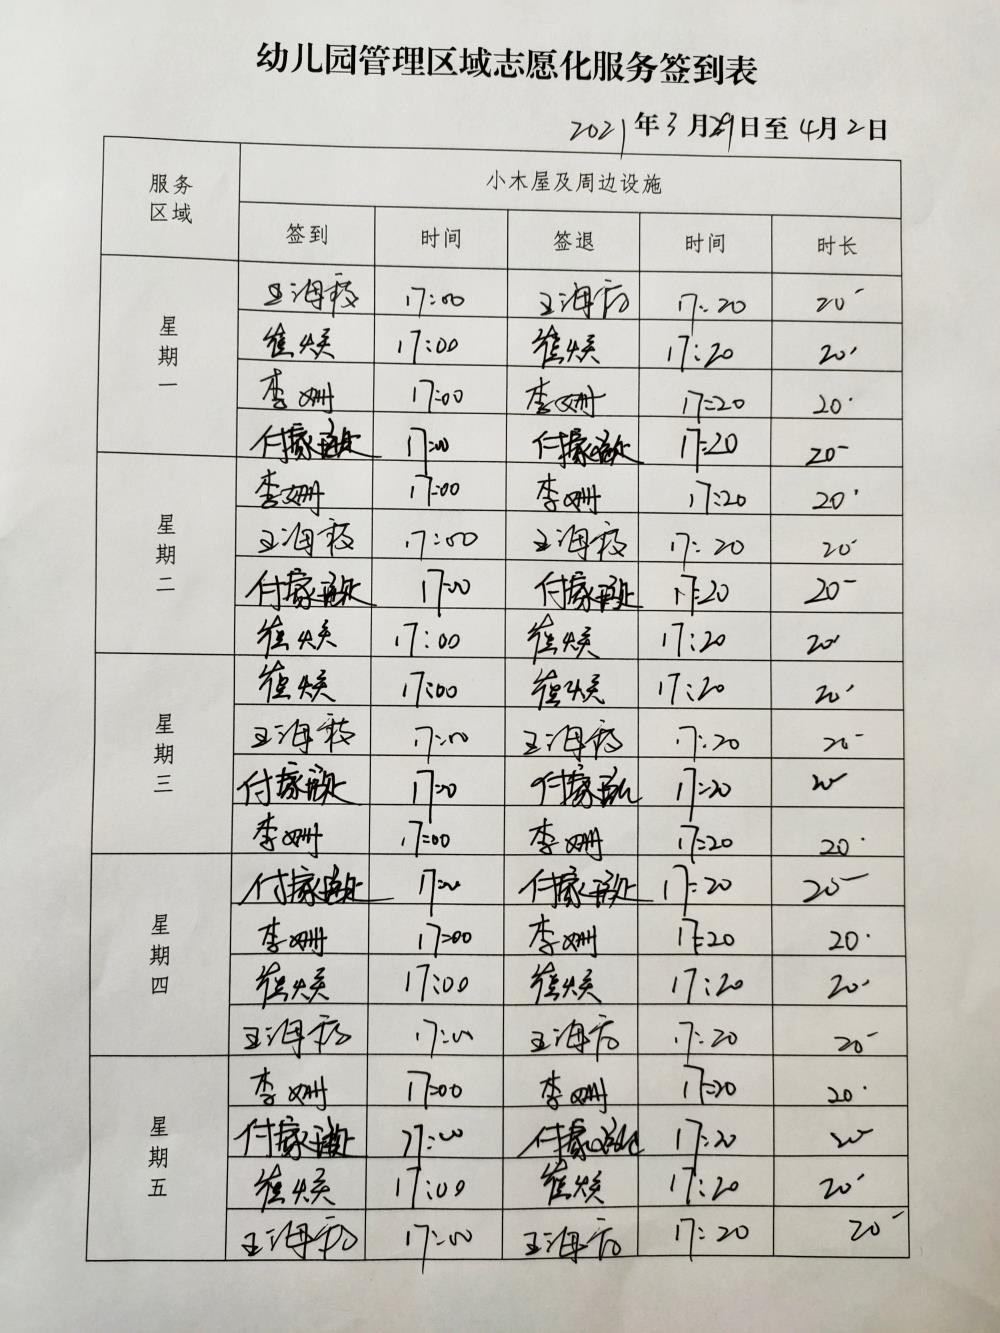 幼儿园管理区域志愿化服务签到表
2021年3月29日至4月2日
服务区域 小木屋及周边设施
签到 时间 签退 时间 时长
星期一
王海 17:00 王海 17:20 20'
崔焕 17:00 崔焕 17:20 20'
李姗 17:00 李姗 17:20 20'
付 17:00 付 17:20 20'
星期二
李姗 17:00 李姗 17:20 20'
王海 17:00 王海 17:20 20'
付 17:00 付 17:20 20'
崔焕 17:00 崔焕 17:20 20'
星期三
崔焕 17:00 崔焕 17:20 20'
王海 17:00 王海 17:20 20'
付 17:00 付 17:20 20'
李姗 17:00 李姗 17:20 20'
星期四
付 17:00 付 17:20 20'
李姗 17:00 李姗 17:20 20'
崔焕 17:00 崔焕 17:20 20'
王海 17:00 王海 17:20 20'
星期五
李姗 17:00 李姗 17:20 20'
付 17:00 付 17:20 20'
崔焕 17:00 崔焕 17:20 20'
王海 17:00 王海 17:20 20'